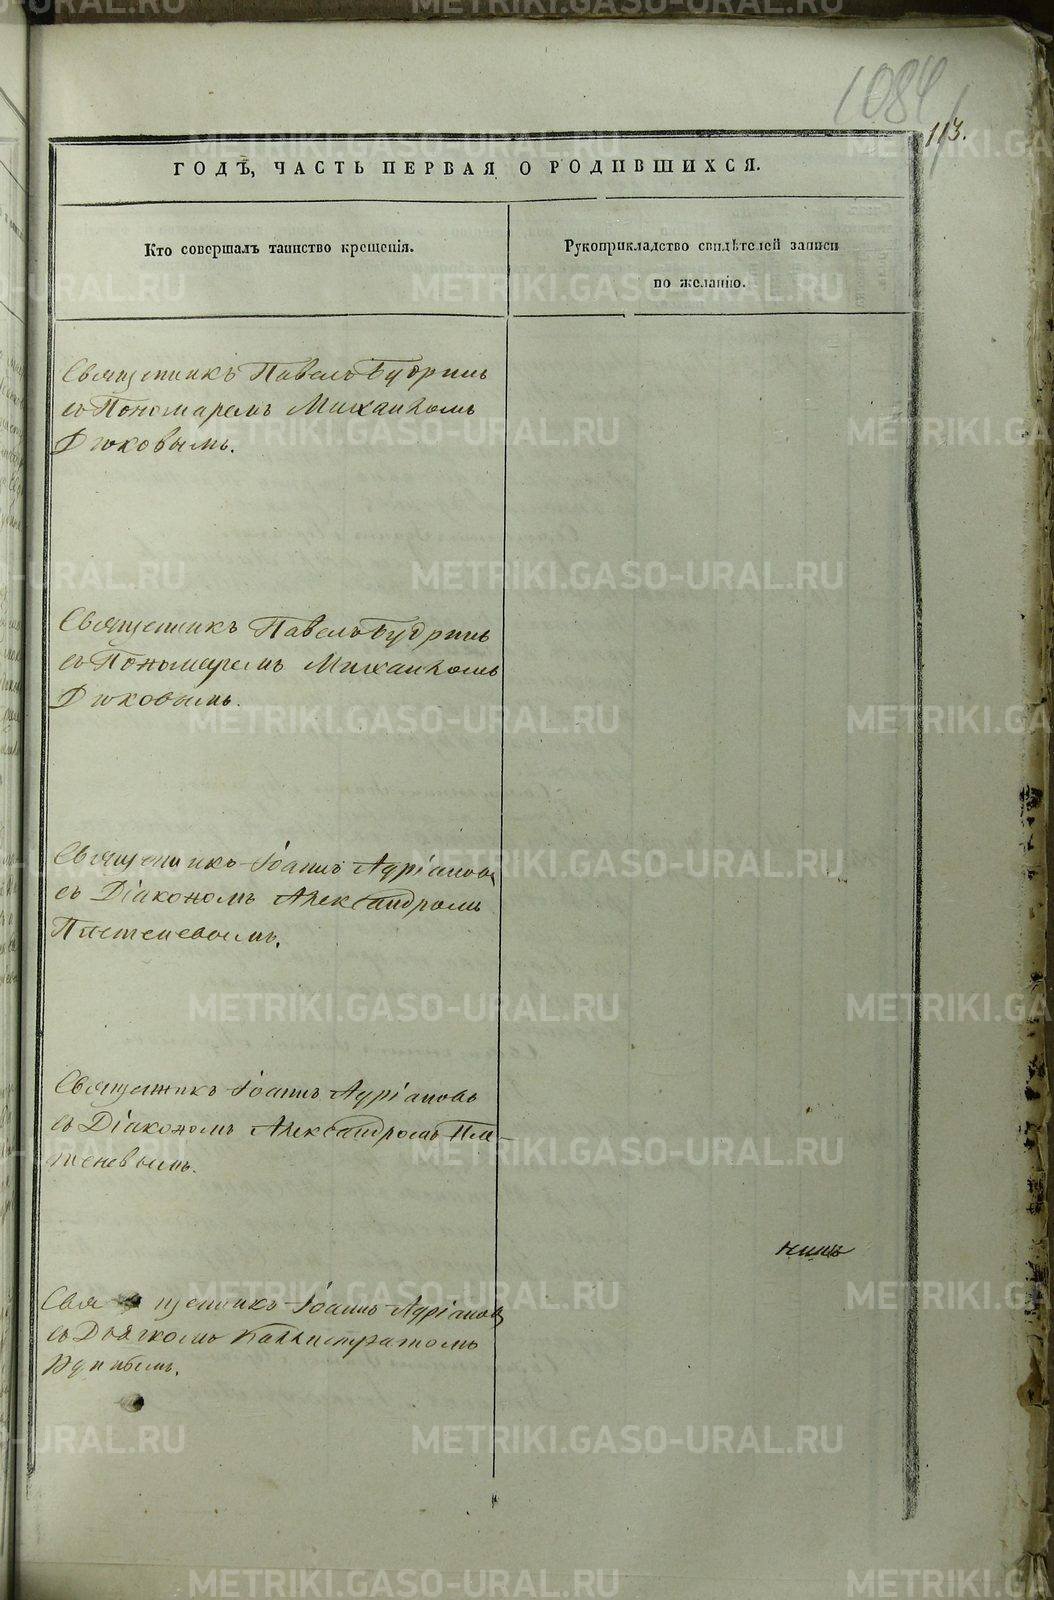 1084
113.
ГОДЪ, ЧАСТЬ ПЕРВАЯ О РОДИВШИХСЯ.
Кто совершалъ таинство крещенія.
Рукоприкладство свидѣтелей записи
по желанію.
Священникъ Павелъ Будринъ
съ Пономаремъ Михаиломъ
Дюковымъ.
Священникъ Павелъ Будринъ
съ Пономаремъ Михаиломъ
Дюковымъ.
Священникъ Іоаннъ Адріановъ
съ Діакономъ Александромъ
Плетеневымъ.
Священникъ Іоаннъ Адріановъ
съ Діакономъ Александромъ Пле-
теневымъ.
Священникъ Іоаннъ Адріановъ
съ Дьячкомъ Каллистратомъ
METRIKI.GASO-URAL.RU